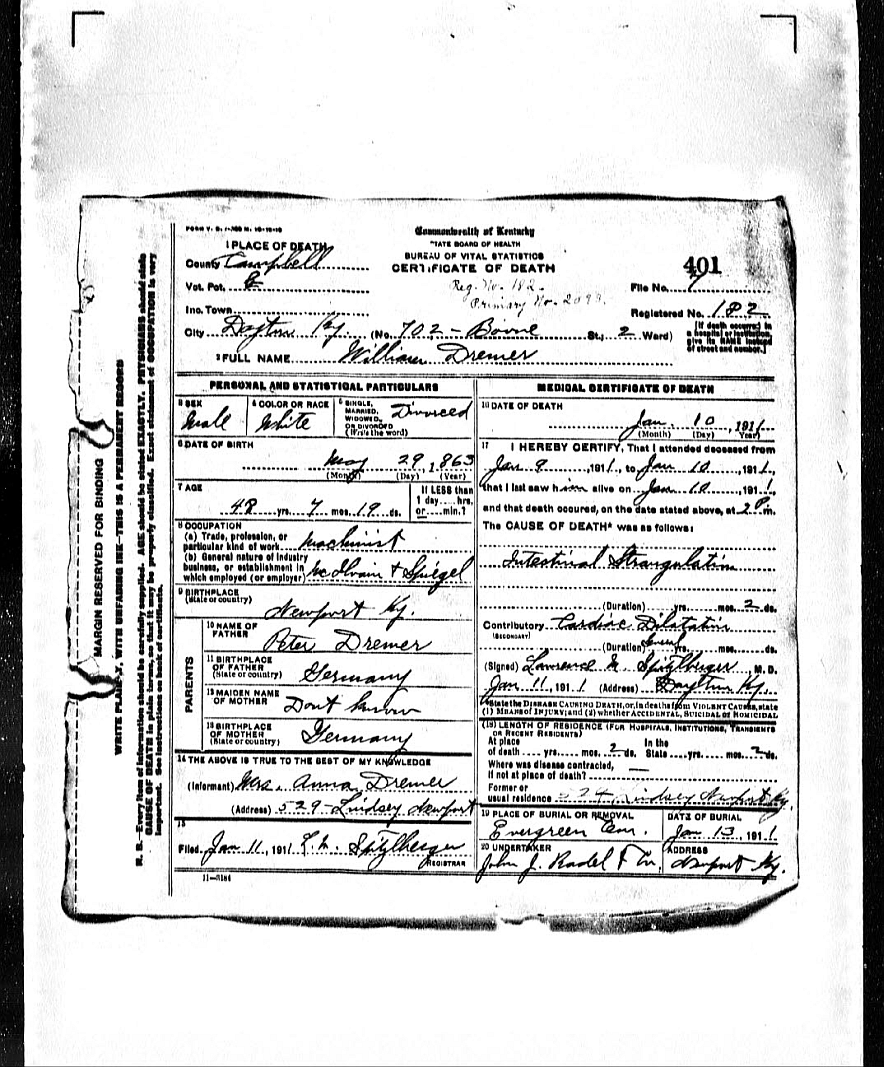 FORM V. S. 1-
Commonwealth of Kentucky
STATE BOARD OF HEALTH
BUREAU OF VITAL STATISTICS
CERTIFICATE OF DEATH
1 PLACE OF DEATH
County Campbell
Vot. Pct. 8
Inc. Town
City Dayton Ky. (No. 702 - Boone St., 2 Ward)
Reg. No. 182
Primary No. 2098
401
File No.
Registered No. 182
[If death occurred in
a hospital or institution,
give its NAME instead
of street and number.]
2 FULL NAME William Dremer
PERSONAL AND STATISTICAL PARTICULARS
3 SEX Male
4 COLOR OR RACE White
5 SINGLE, MARRIED, WIDOWED, OR DIVORCED (Write the word) Divorced
6 DATE OF BIRTH
May 29, 1863
(Month) (Day) (Year)
7 AGE
48 yrs. 7 mos. 19 ds.
If LESS than
1 day....hrs.
or....min.?
8 OCCUPATION
(a) Trade, profession, or
particular kind of work Machinist
(b) General nature of industry
business, or establishment in
which employed (or employer) McIlvain & Spiegel
9 BIRTHPLACE
(State or country) Newport Ky.
PARENTS
10 NAME OF
FATHER Peter Dremer
11 BIRTHPLACE
OF FATHER
(State or country) Germany
12 MAIDEN NAME
OF MOTHER Dont know
13 BIRTHPLACE
OF MOTHER
(State or country) Germany
14 THE ABOVE IS TRUE TO THE BEST OF MY KNOWLEDGE
(Informant) Mrs. Anna Dremer
(Address) 529 - Lindsey Newport
15
Filed Jan 11, 1911 L. N. Spitzlberger
REGISTRAR
11-3184
MEDICAL CERTIFICATE OF DEATH
16 DATE OF DEATH
Jan. 10, 1911
(Month) (Day) (Year)
17 I HEREBY CERTIFY, That I attended deceased from
Jan 9, 1911, to Jan 10, 1911,
that I last saw him alive on Jan 10, 1911,
and that death occured, on the date stated above, at 2 P m.
The CAUSE OF DEATH* was as follows:
Intestinal Strangulation
(Duration) yrs. mos. 2 ds.
Contributory Cardiac Dilatation
(SECONDARY)
(Duration) Several yrs. mos. ds.
(Signed) Lawrence N. Spitzlberger M. D.
Jan 11, 1911 (Address) Dayton Ky.
*State the DISEASE CAUSING DEATH, or, in deaths from VIOLENT CAUSES, state
(1) MEANS of INJURY; and (2) whether ACCIDENTAL, SUICIDAL or HOMICIDAL
(18) LENGTH OF RESIDENCE (FOR HOSPITALS, INSTITUTIONS, TRANSIENTS
OR RECENT RESIDENTS)
At place In the
of death yrs. mos. 2 ds. State yrs. mos. 2 ds.
Where was disease contracted,
if not at place of death? —
Former or
usual residence Lindsey Newport Ky.
19 PLACE OF BURIAL OR REMOVAL
Evergreen Cem.
DATE OF BURIAL
Jan 13, 1911
20 UNDERTAKER
John J. Radel & Co.
ADDRESS
Newport Ky.
MARGIN RESERVED FOR BINDING
WRITE PLAINLY, WITH UNFADING INK—THIS IS A PERMANENT RECORD
N. B.—Every item of information should be carefully supplied. AGE should be stated EXACTLY. PHYSICIANS should state
CAUSE OF DEATH in plain terms, so that it may be properly classified. Exact statement of OCCUPATION is very
important. See instructions on back of certificate.